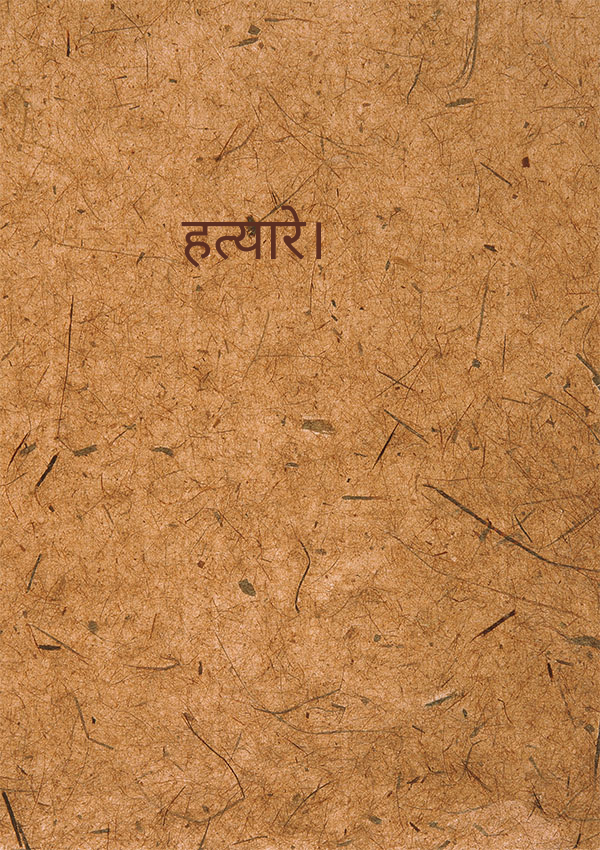 हत्यारे।